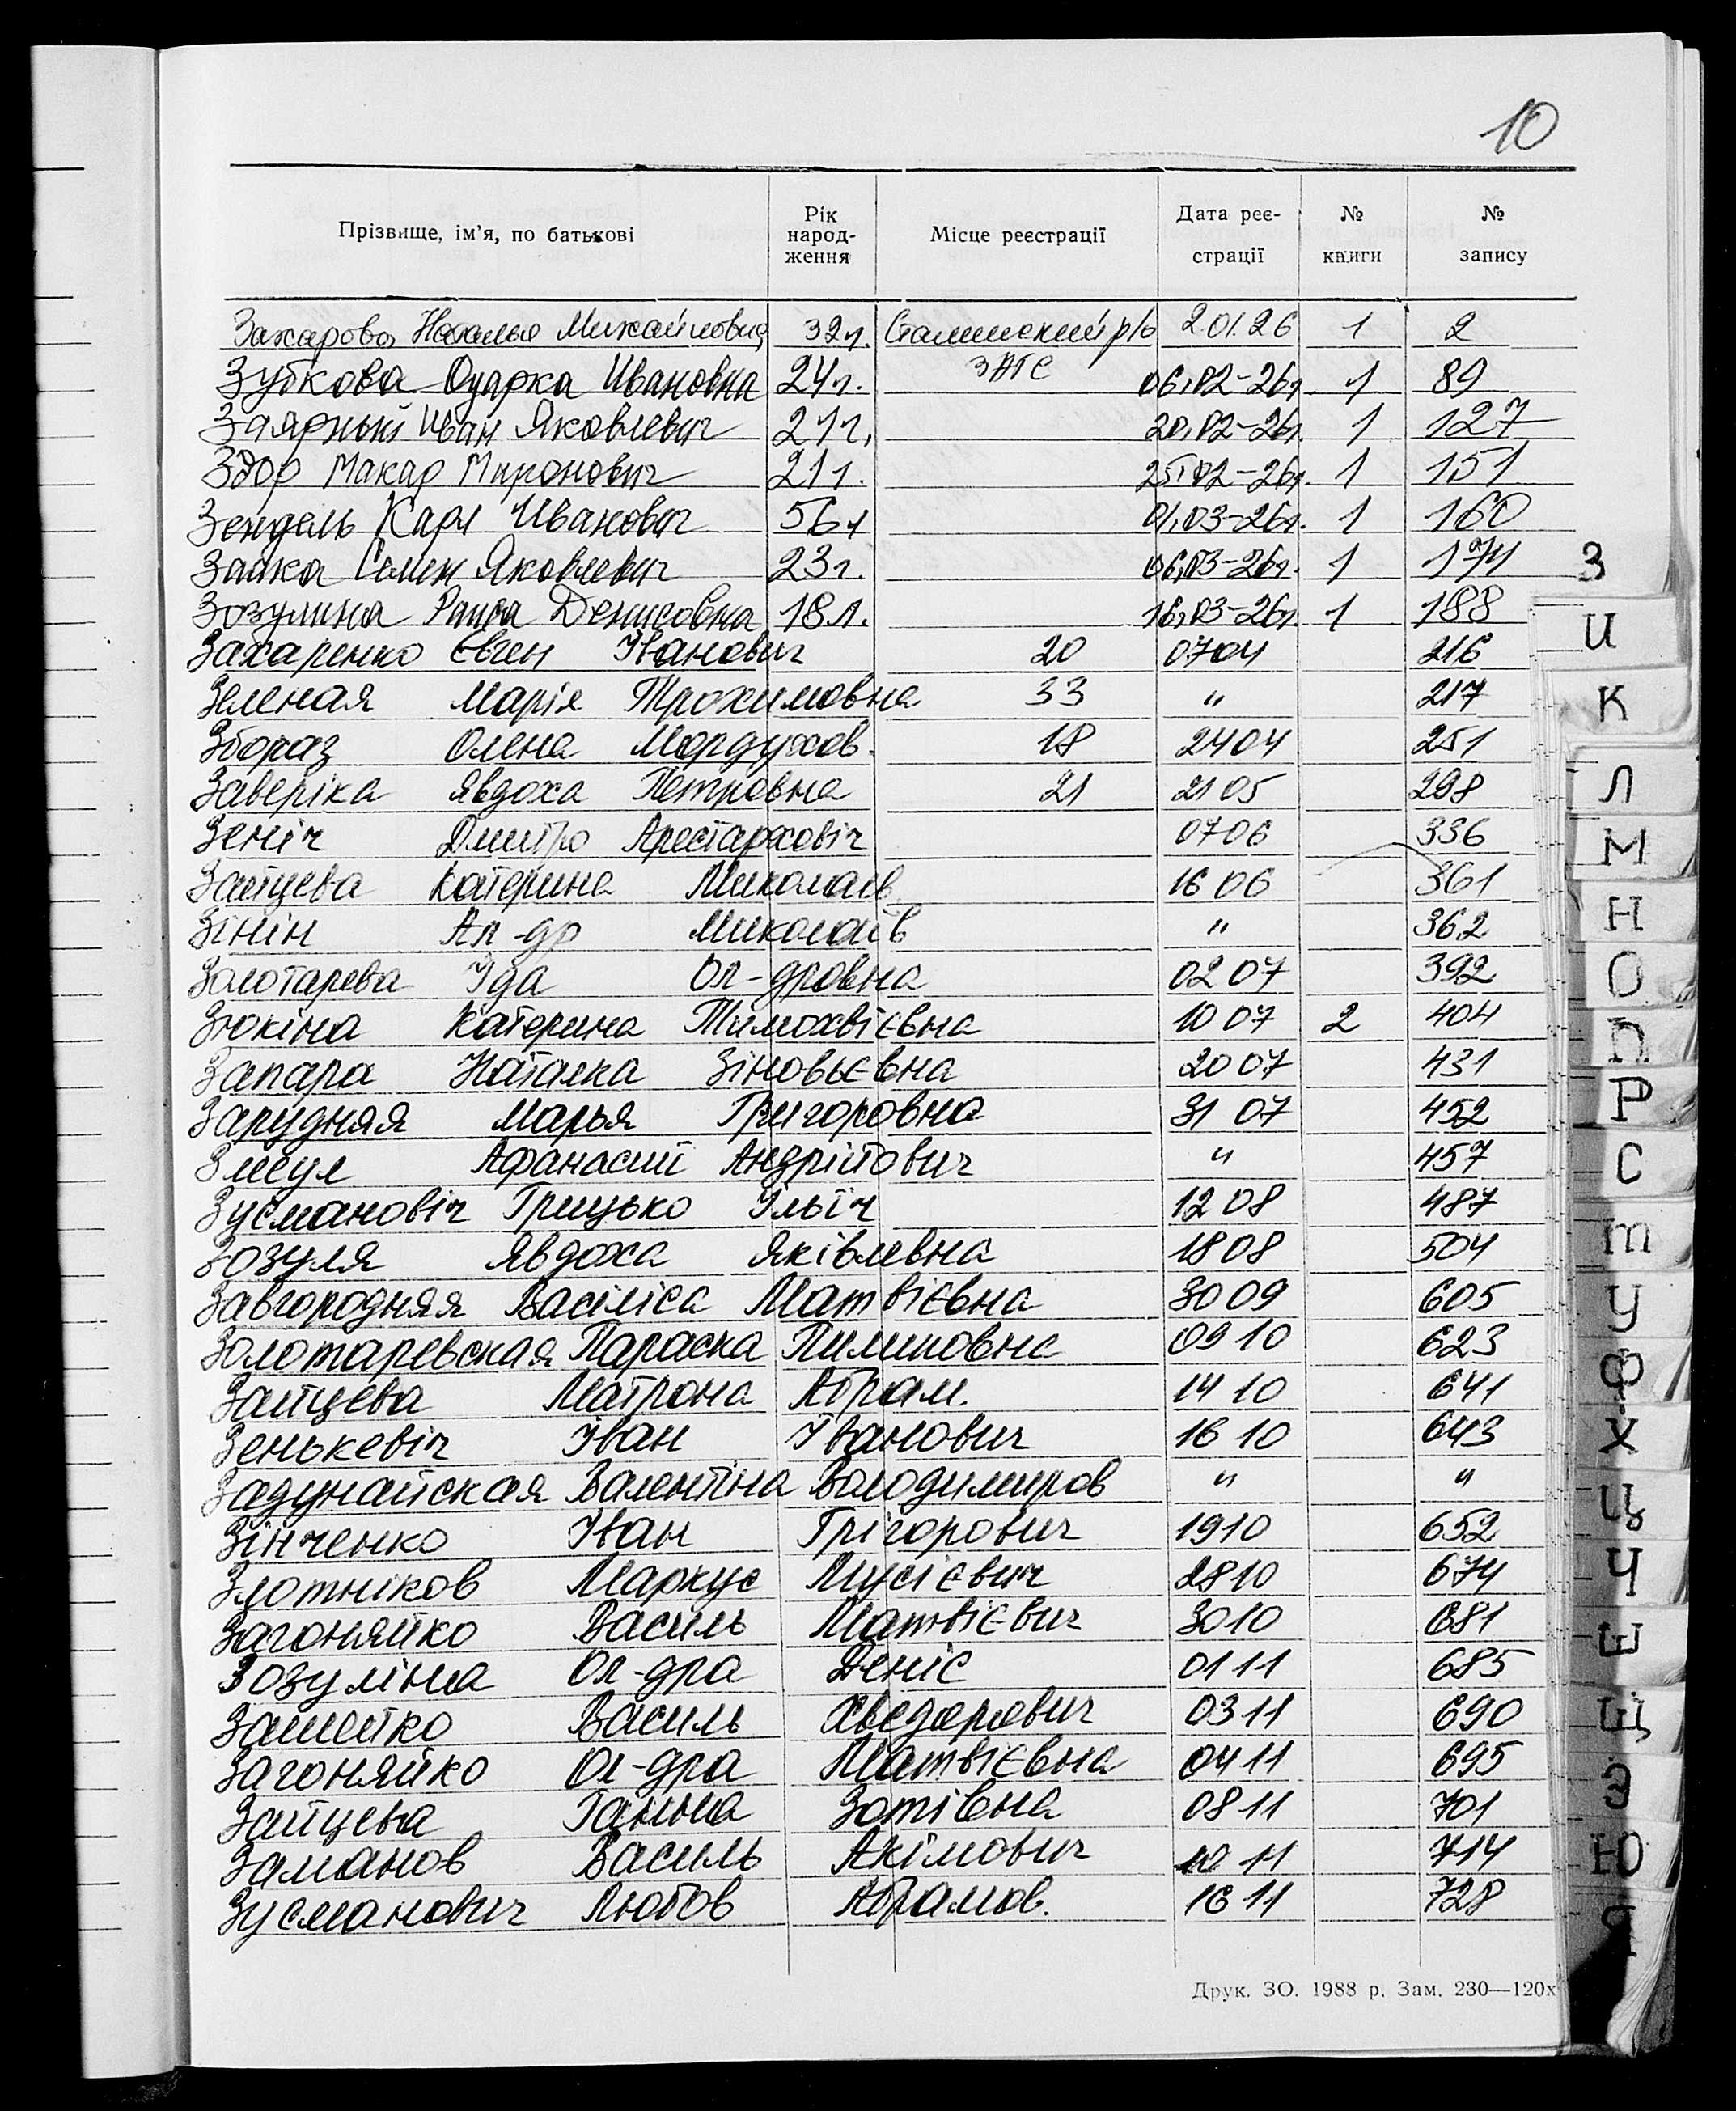 10
Прізвище, ім'я, по батькові Рік народ- ження Місце реєстрації Дата реє- страції № книги № запису
Захарова Наталья Михайловна 32г. Сталинский р/о 2.01.26 1 2
ЗАГС
Зубкова Одарка Ивановна 24г. 06.02-26г. 1 89
Заярный Иван Яковлевич 21г. 20.02-26г. 1 127
Здор Макар Миронович 21г. 25.02-26г. 1 151
Зендель Карл Иванович 56л 01.03-26г. 1 160
Заика Семен Яковлевич 23г. 06.03-26г. 1 174
Зозулина Раиса Денисовна 18л. 16.03-26г 1 188
Захаренко Євген Іванович 20 0704 216
Зеленая Марія Трохимовна 33 " 217
Збораз Олена Мордухов. 18 2404 251
Заверіка Явдоха Петровна 21 2105 298
Зеніч Дмитро Арестархович 0706 336
Зайцева Катерина Миколаєв 16 06 361
Зінін Ал-др Миколаїв " 362
Золотарева Іда Ол-дровна 02 07 392
Зюкіна Катерина Тимохвієвна 10 07 2 404
Запара Наталка Зіновьєвна 20 07 431
Зарудняя Марья Григоровна 31 07 452
Змеул Афанасий Андрійович " 457
Зусмановіч Грицько Ільїч 12 08 487
Зозуля Явдоха Яківлевна 18 08 504
Завгородняя Васіліса Матвієвна 30 09 605
Золотаревская Параска Пилиповна 09 10 623
Зайцева Матрона Абрам. 14 10 641
Зенькевіч Іван Іванович 16 10 643
Задунайская Валентіна Володимиров " "
Зінченко Іван Грігорович 1910 652
Злотніков Маркус Мусієвич 2810 674
Загоняйко Василь Матвієвич 3010 681
Зозуліна Ол-дра Деніс 01 11 685
Василь Хведорович 03 11 690
Загоняйко Ол-дра Матвієвна 04 11 695
Зайцева Ганна Зотівна 08 11 701
Заманов Василь Акімович 10 11 714
Зусманович Любов Абрамов. 16 11 728
Друк. ЗО. 1988 р. Зам. 230—120х
З
И
К
Л
М
Н
О
П
Р
С
Т
У
Ф
Х
Ц
Ч
Ш
Щ
Э
Ю
Я